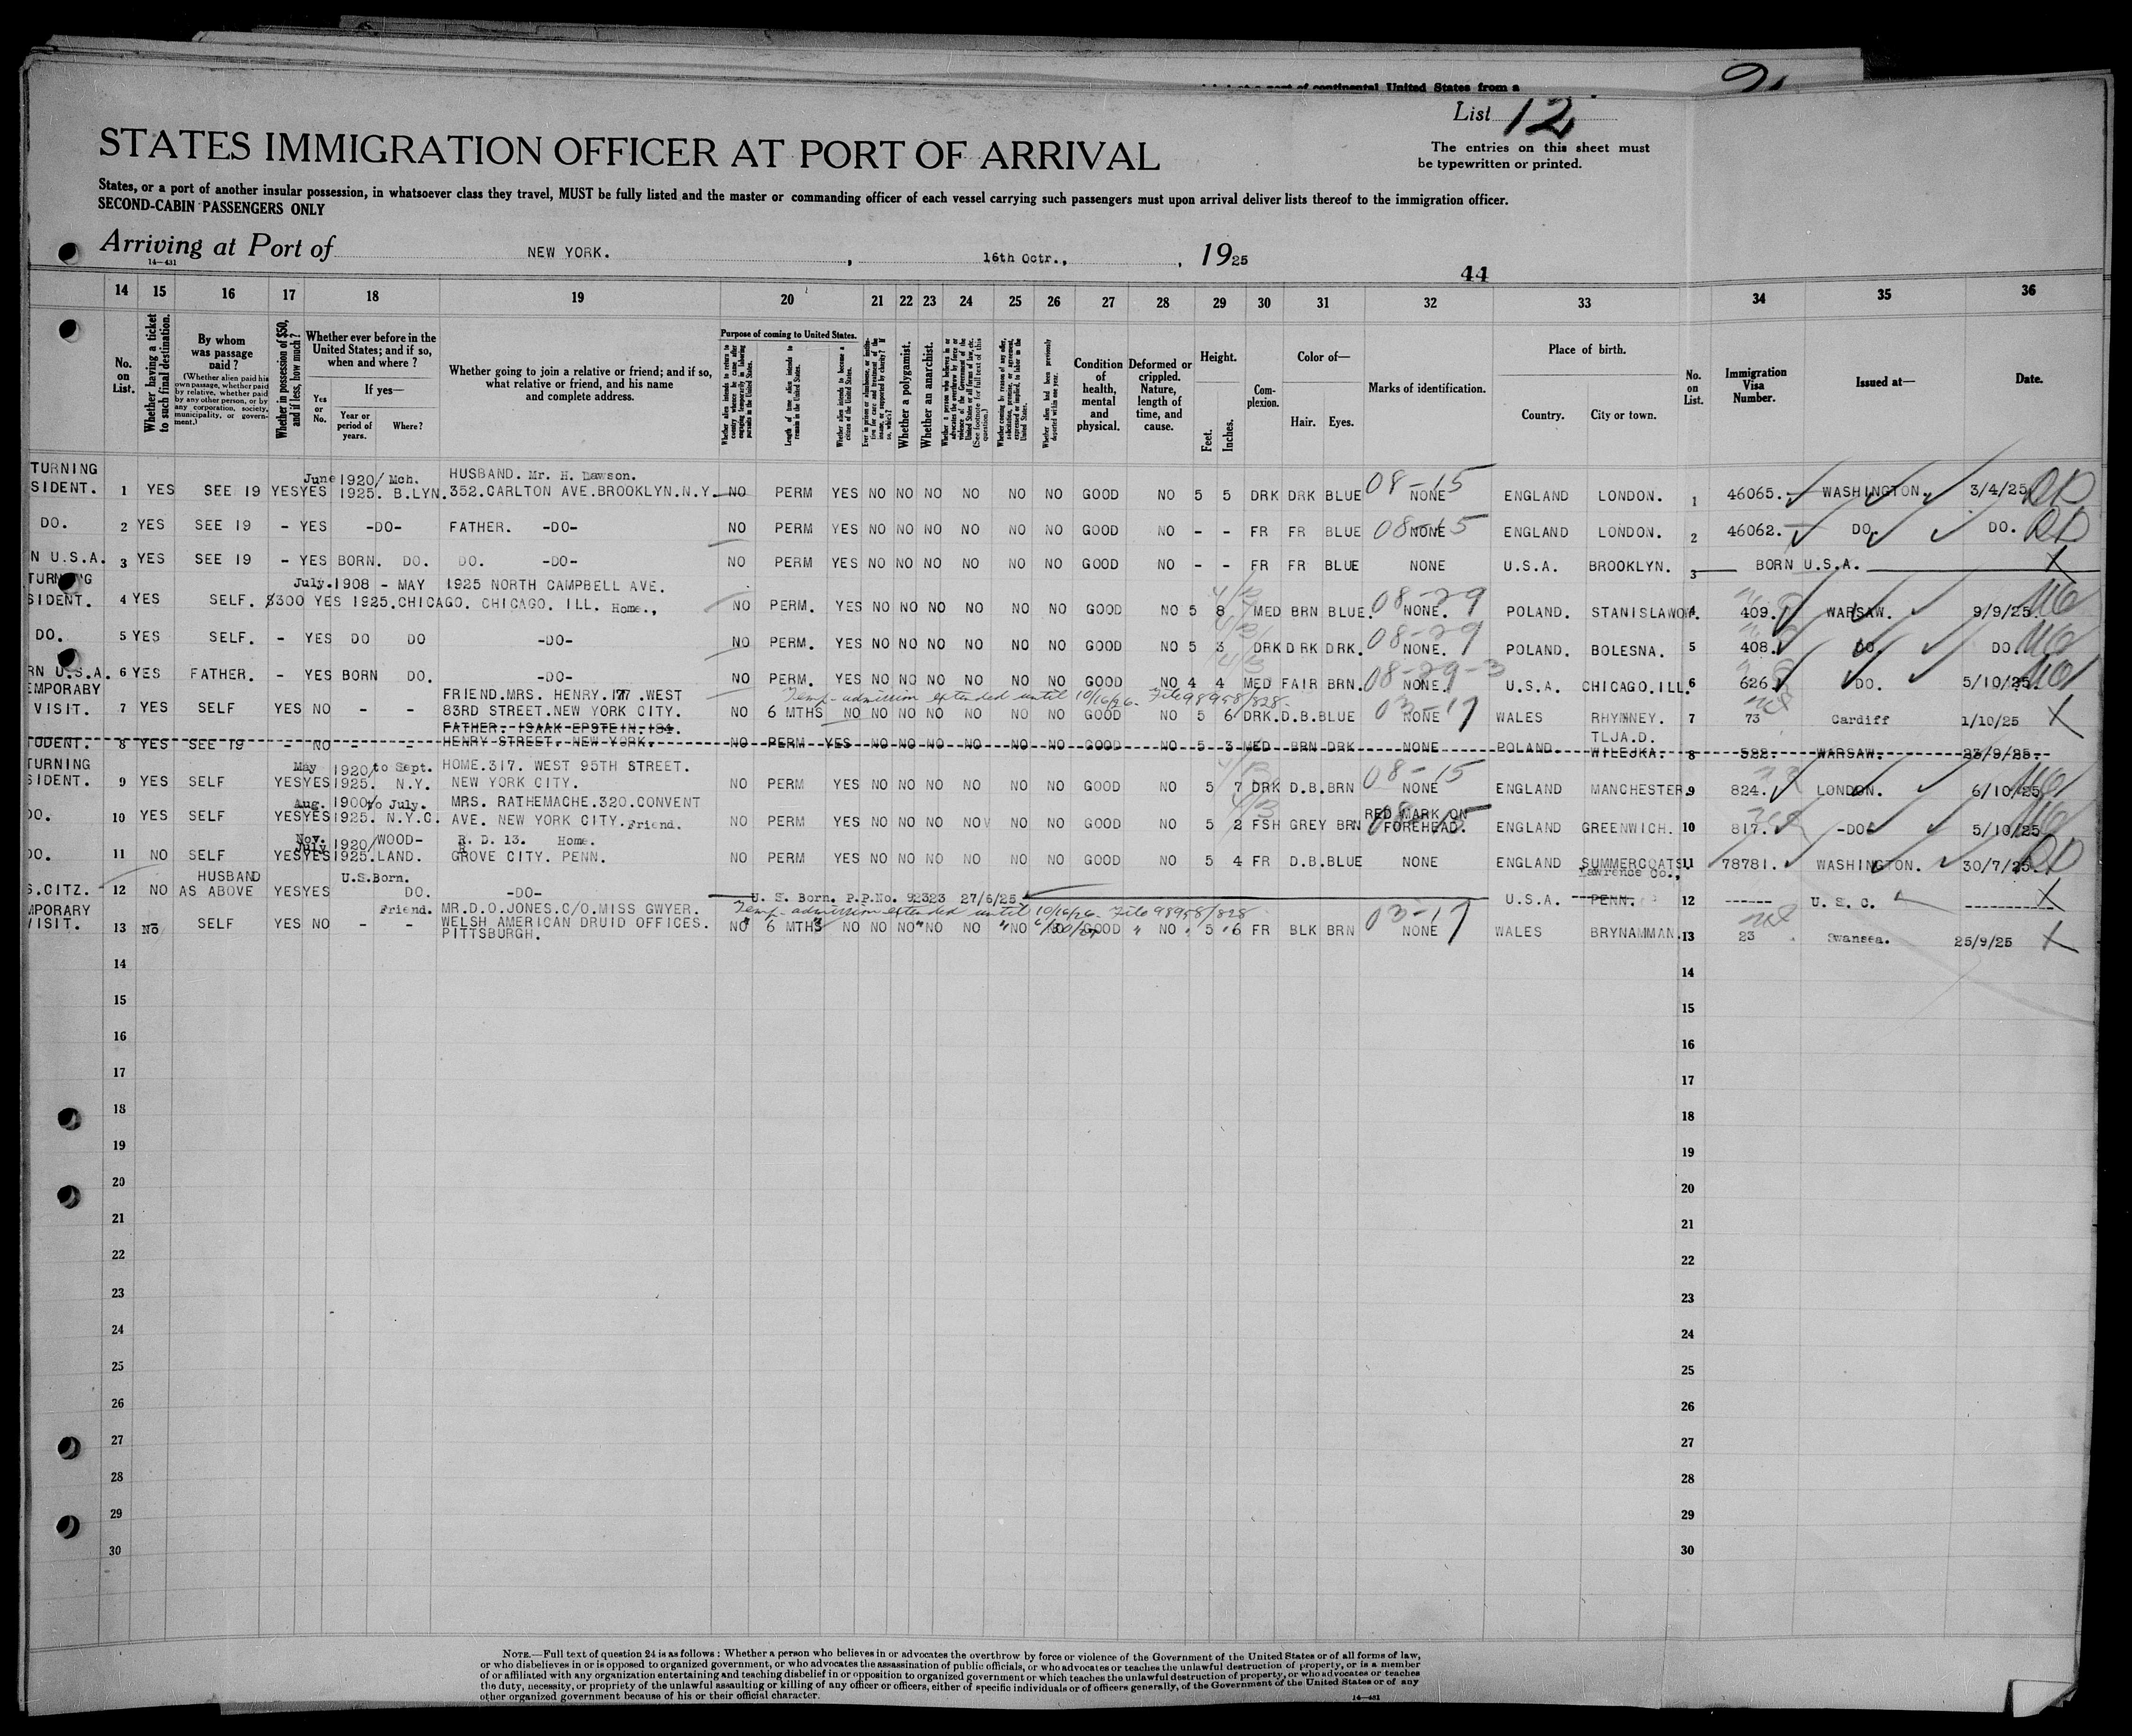 a port of continental United States from a
List 12
The entries on this sheet must
be typewritten or printed.
STATES IMMIGRATION OFFICER AT PORT OF ARRIVAL
States, or a port of another insular possession, in whatsoever class they travel, MUST be fully listed and the master or commanding officer of each vessel carrying such passengers must upon arrival deliver lists thereof to the immigration officer.
SECOND-CABIN PASSENGERS ONLY
Arriving at Port of NEW YORK. , 16th Octr., , 1925
14—431
44
14 15 16 17 18 19 20 21 22 23 24 25 26 27 28 29 30 31 32 33 34 35 36
No. on List.
Whether having a ticket to such final destination.
By whom was passage paid?
(Whether alien paid his own passage, whether paid by relative, whether paid by any other person, or by any corporation, society, municipality, or government.)
Whether in possession of $50, and if less, how much?
Whether ever before in the United States; and if so, when and where?
Yes or No.
If yes—
Year or period of years.
Where?
Whether going to join a relative or friend; and if so, what relative or friend, and his name and complete address.
Purpose of coming to United States.
Whether alien intends to return to country whence he came after engaging temporarily in laboring pursuits in the United States.
Length of time alien intends to remain in the United States.
Whether alien intends to become a citizen of the United States.
Whether a polygamist.
Whether an anarchist.
(See footnote for full text of this question.)
Condition of health, mental and physical.
Deformed or crippled. Nature, length of time, and cause.
Height.
Feet. Inches.
Complexion.
Color of—
Hair. Eyes.
Marks of identification.
Place of birth.
Country. City or town.
No. on List.
Immigration Visa Number.
Issued at—
Date.
TURNING June 1920/ Mch. HUSBAND. Mr. H. Dawson. 08-15
SIDENT. 1 YES SEE 19 YES YES 1925. B.LYN. 352.CARLTON AVE.BROOKLYN.N.Y. NO PERM YES NO NO NO NO NO NO GOOD NO 5 5 DRK DRK BLUE NONE ENGLAND LONDON. 1 46065. WASHINGTON. 3/4/25
DO. 2 YES SEE 19 - YES -DO- FATHER. -DO- NO PERM YES NO NO NO NO NO NO GOOD NO - - FR FR BLUE 08-15 NONE ENGLAND LONDON. 2 46062. DO. DO.
N U.S.A. 3 YES SEE 19 - YES BORN. DO. DO. -DO- NO PERM YES NO NO NO NO NO NO GOOD NO - - FR FR BLUE NONE U.S.A. BROOKLYN. 3 BORN U.S.A. X
TURNING July.1908 - MAY 1925 NORTH CAMPBELL AVE. 4/B 08-29
SIDENT. 4 YES SELF. $300 YES 1925.CHICAGO. CHICAGO. ILL. Home., NO PERM. YES NO NO NO NO NO NO GOOD NO 5 8 MED BRN BLUE. NONE. POLAND. STANISLAWOW. 4 409. WARSAW. 9/9/25
DO. 5 YES SELF. - YES DO DO -DO- NO PERM. YES NO NO NO NO NO NO GOOD NO 5 3 DRK DRK DRK. 08-29 NONE. POLAND. BOLESNA. 5 408. DO. DO
RN U.S.A. 6 YES FATHER. - YES BORN DO. -DO- NO PERM. YES NO NO NO NO NO NO GOOD NO 4 4 MED FAIR BRN. 08-29-3 NONE. U.S.A. CHICAGO.ILL. 6 626. DO. 5/10/25.
EMPORARY FRIEND.MRS. HENRY.177.WEST Temp- admission extended until 10/16/26- File 98958/828-
VISIT. 7 YES SELF YES NO - - 83RD STREET.NEW YORK CITY. NO 6 MTHS NO NO NO NO NO NO NO GOOD NO 5 6 DRK.D.B.BLUE 03-17 NONE WALES RHYMNEY. 7 73 Cardiff 1/10/25 X
FATHER. ISAAK EPSTEIN.184. TLJA.D.
TUDENT. 8 YES SEE 19 - NO - - HENRY STREET. NEW YORK. NO PERM YES NO NO NO NO NO NO GOOD NO 5 3 MED BRN DRK NONE POLAND. WILEJKA. 8 522. WARSAW. 23/9/25.
TURNING May 1920/to Sept. HOME.317. WEST 95TH STREET. 4/B 08-15
SIDENT. 9 YES SELF YES YES 1925. N.Y. NEW YORK CITY. NO PERM YES NO NO NO NO NO NO GOOD NO 5 7 DRK D.B.BRN NONE ENGLAND MANCHESTER. 9 824. LONDON. 6/10/25
Aug. 1900/to July. MRS. RATHEMACHE.320.CONVENT 4/B RED MARK ON
DO. 10 YES SELF YES YES 1925. N.Y.C. AVE. NEW YORK CITY. Friend. NO PERM YES NO NO NO NO NO NO GOOD NO 5 2 FSH GREY BRN 08-15 FOREHEAD. ENGLAND GREENWICH. 10 817. -DO- 5/10/25
Nov. July 1920/ WOOD- R. D. 13. Home.
DO. 11 NO SELF YES YES 1925. LAND. GROVE CITY. PENN. NO PERM YES NO NO NO NO NO NO GOOD NO 5 4 FR D.B.BLUE NONE ENGLAND SUMMERCOATS. 11 78781. WASHINGTON. 30/7/25.
HUSBAND U.S.Born. Lawrence Co.,
S.CITZ. 12 NO AS ABOVE YES YES DO. -DO- U. S. Born. P.P.No. 92323 27/6/25. U.S.A. PENN. 12 ------ U. S. C. X
MPORARY Friend. MR.D.O.JONES.C/O.MISS GWYER. Temp- admission extended until 10/16/26- File 98958/828
VISIT. 13 No SELF YES NO - - WELSH AMERICAN DRUID OFFICES. NO 6 MTHS NO NO NO NO NO NO GOOD NO 5 6 FR BLK BRN 03-17 NONE WALES BRYNAMMAN. 13 23 Swansea. 25/9/25 X
PITTSBURGH.
14 14
15 15
16 16
17 17
18 18
19 19
20 20
21 21
22 22
23 23
24 24
25 25
26 26
27 27
28 28
29 29
30 30
NOTE.—Full text of question 24 is as follows: Whether a person who believes in or advocates the overthrow by force or violence of the Government of the United States or of all forms of law,
or who disbelieves in or is opposed to organized government, or who advocates the assassination of public officials, or who advocates or teaches the unlawful destruction of property, or is a member
of or affiliated with any organization entertaining and teaching disbelief in or opposition to organized government or which teaches the unlawful destruction of property, or who advocates or teaches
the duty, necessity, or propriety of the unlawful assaulting or killing of any officer or officers, either of specific individuals or of officers generally, of the Government of the United States or of any
other organized government because of his or their official character.
14—431